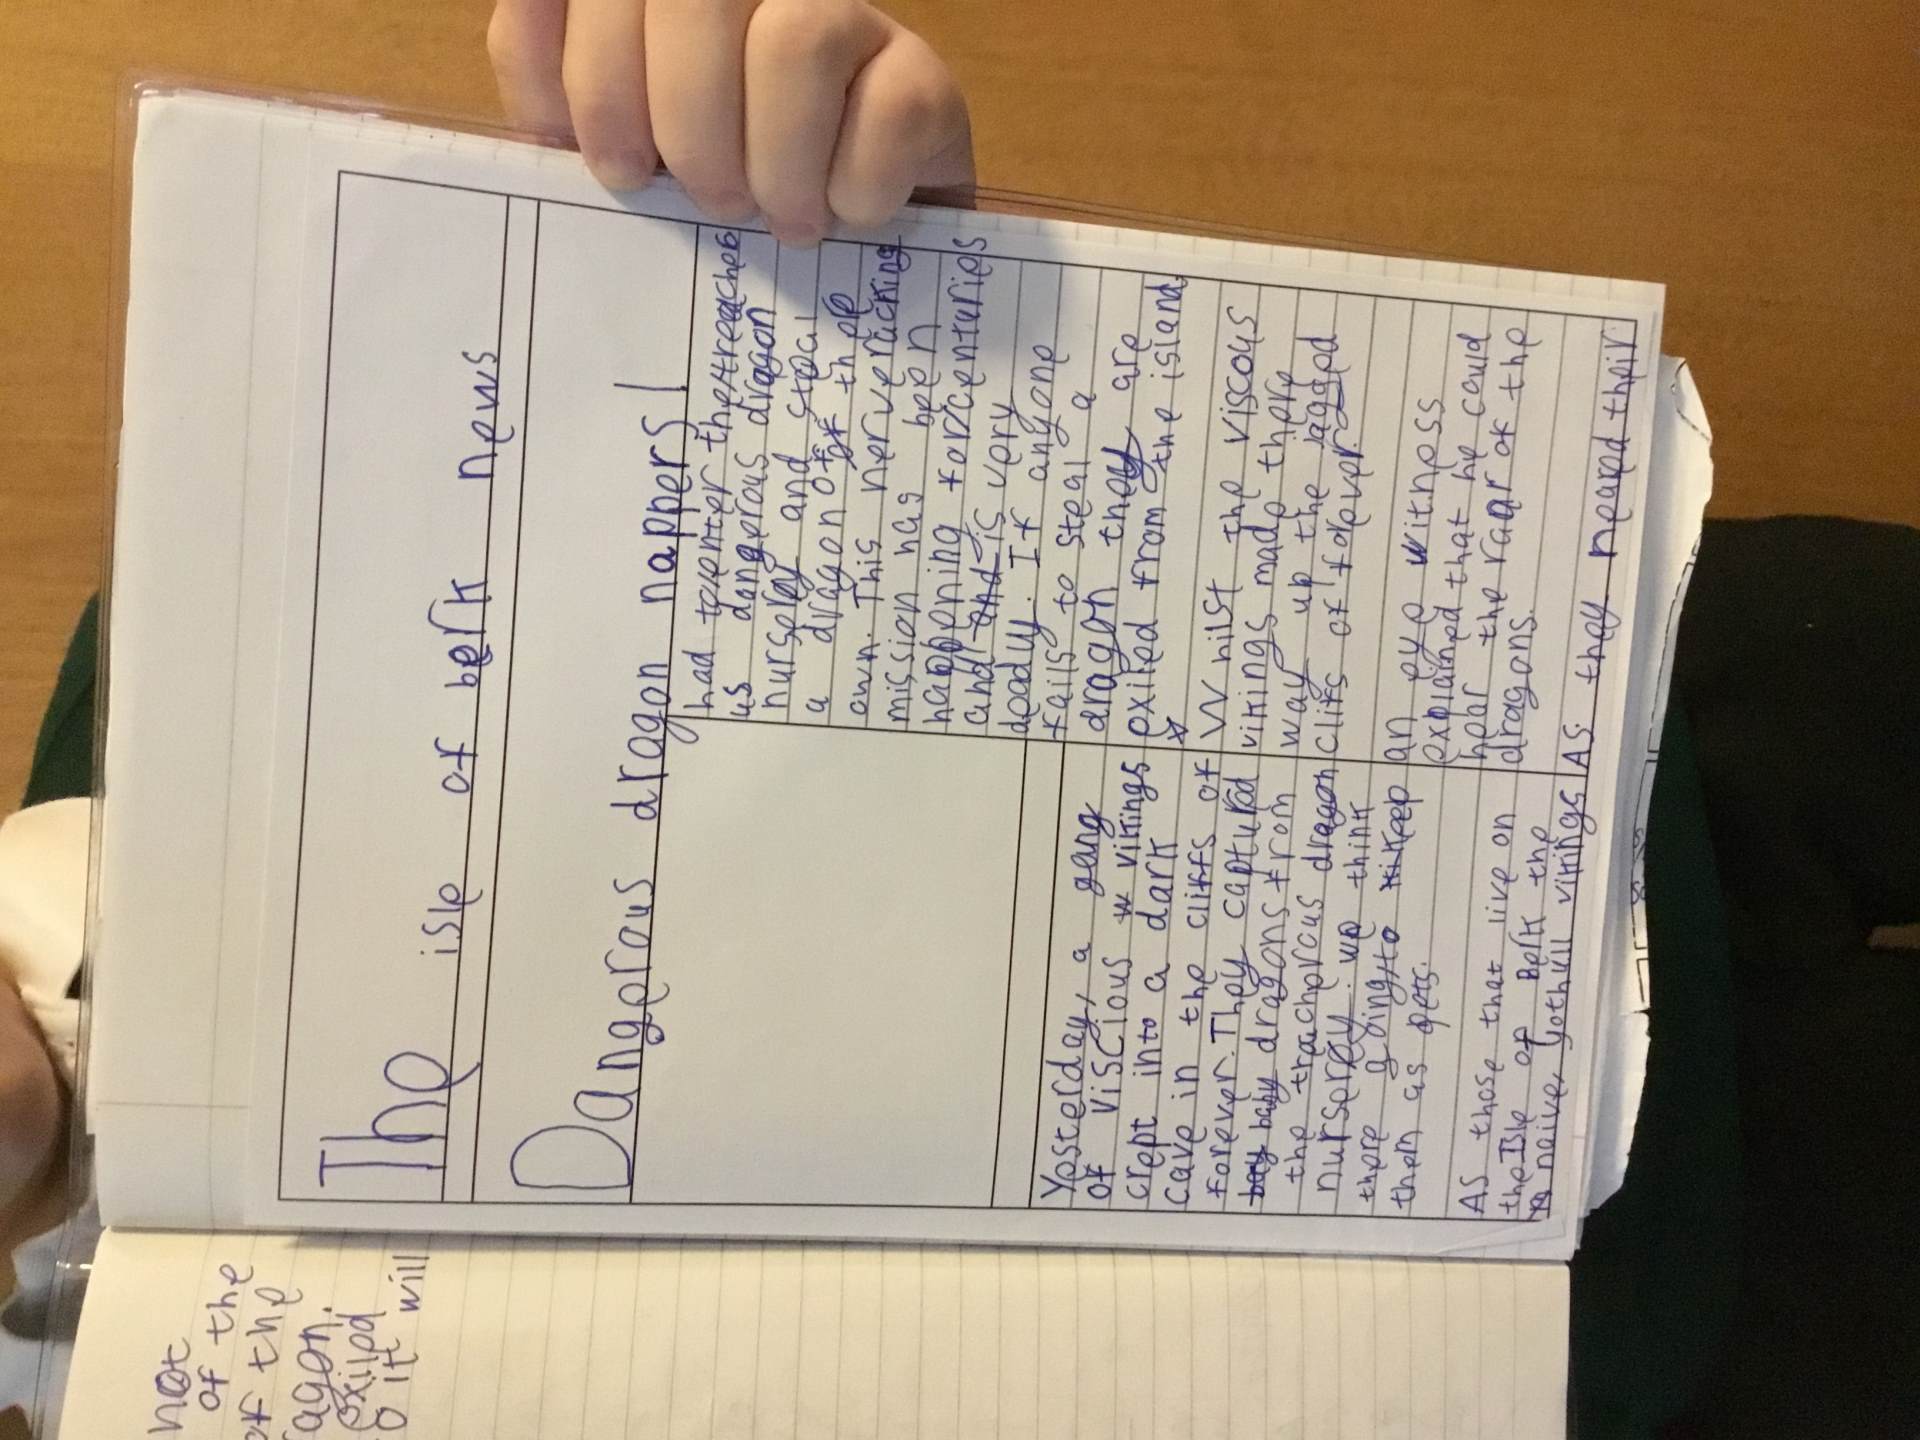 not
of the
of the
ragon.
exiled
o it will
The isle of berk news
Dangerous dragon nappers!
Yesterday, a gang
of viscious w vikings
crept into a dark
cave in the cliffs of
forever. They captured
bay baby dragons from
the tracherous dragon
nurserey. we think
there going to keep
them as pets.
As those that live on
the Isle of Berk the
naive, yothull vikings
had to enter the treaches
us dangerous dragon
nurserey and steal
a dragon of of there
own. This nerveracking
mission has been
happening for centuries
and and is very
deadly. If anyone
fails to steal a
dragon they are
exiled from the island.
Whilst the viscous
vikings made there
way up the jagged
clifs of forever.
an eye witness
explained that he could
hear the roar of the
dragons.
As they neared their